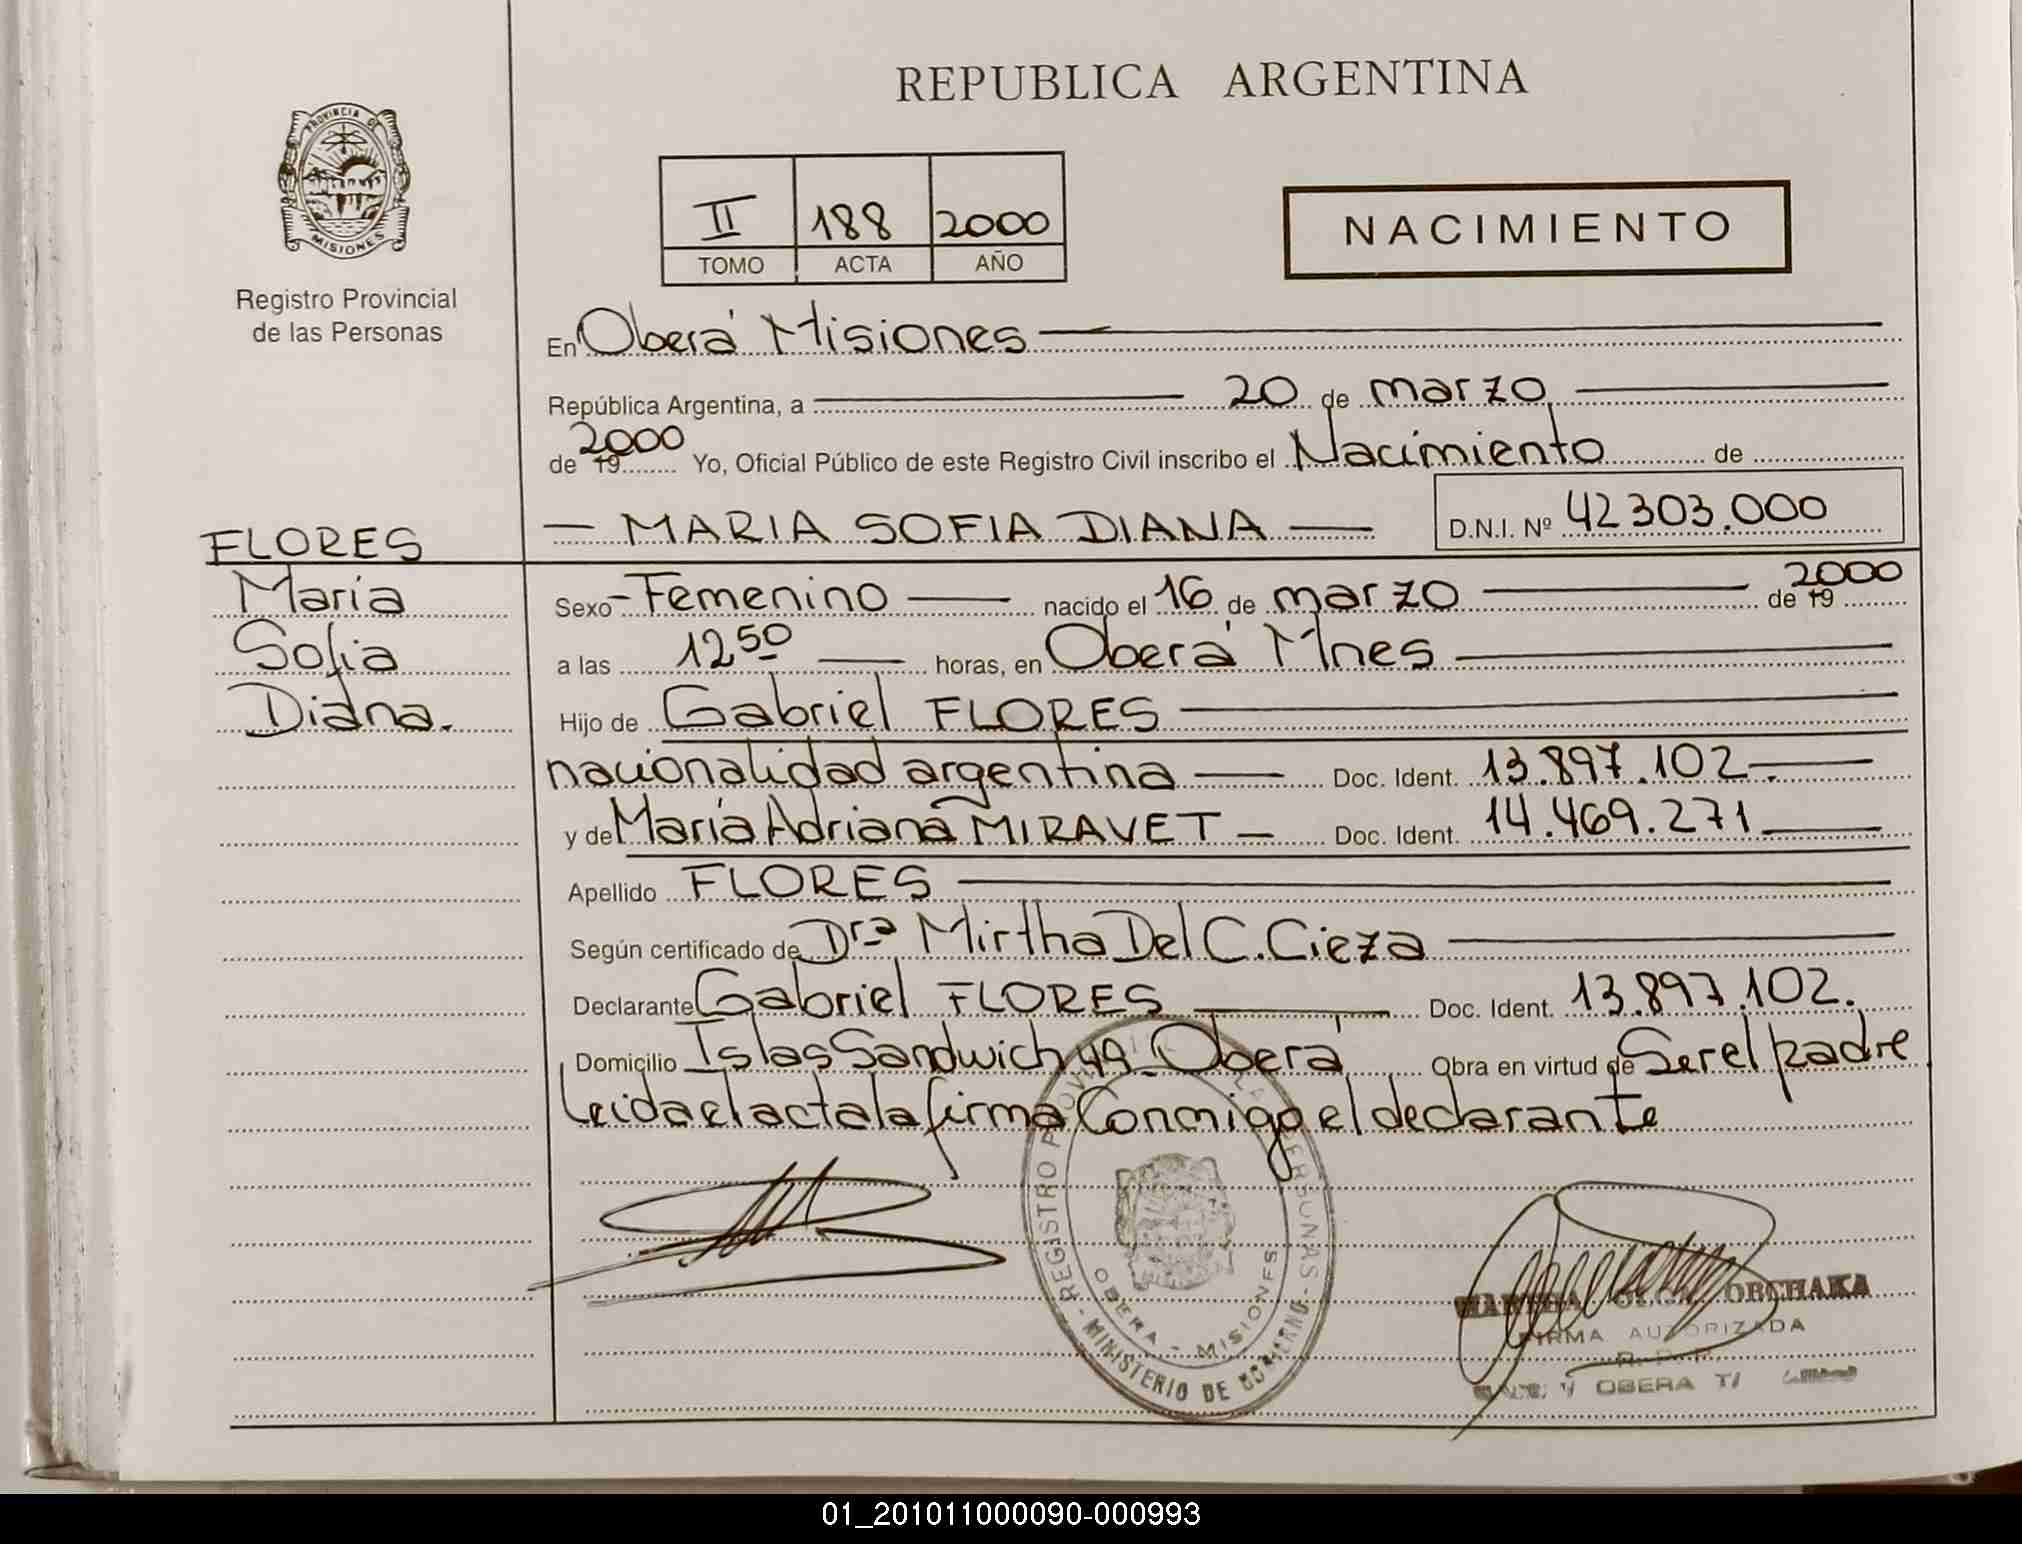 REPUBLICA ARGENTINA
PROVINCIA DE
MISIONES
Registro Provincial
de las Personas
II 188 2000
TOMO ACTA AÑO
NACIMIENTO
En Oberá Misiones
República Argentina, a 20 de marzo
de 19 2000 Yo, Oficial Público de este Registro Civil inscribo el Nacimiento de
FLORES
MARIA SOFIA DIANA D.N.I. Nº 42303.000
María
Sofia
Diana.
Sexo Femenino nacido el 16 de marzo de 19 2000
a las 12 50 horas, en Oberá Mnes
Hijo de Gabriel FLORES
nacionalidad argentina Doc. Ident. 13.897.102.
y de María Adriana MIRAVET Doc. Ident. 14.469.271
Apellido FLORES
Según certificado de Dra Mirtha Del C. Cieza
Declarante Gabriel FLORES Doc. Ident. 13.897.102.
Domicilio Islas Sandwich 49 Oberá Obra en virtud de Ser el padre
Leida el acta la firma Conmigo el declarante
REGISTRO PROVINCIAL DE LAS PERSONAS
OBERA - MISIONES
MINISTERIO DE GOBIERNO
OLGA ORCHAKA
FIRMA AUTORIZADA
R.P.P.
OBERA
01_201011000090-000993